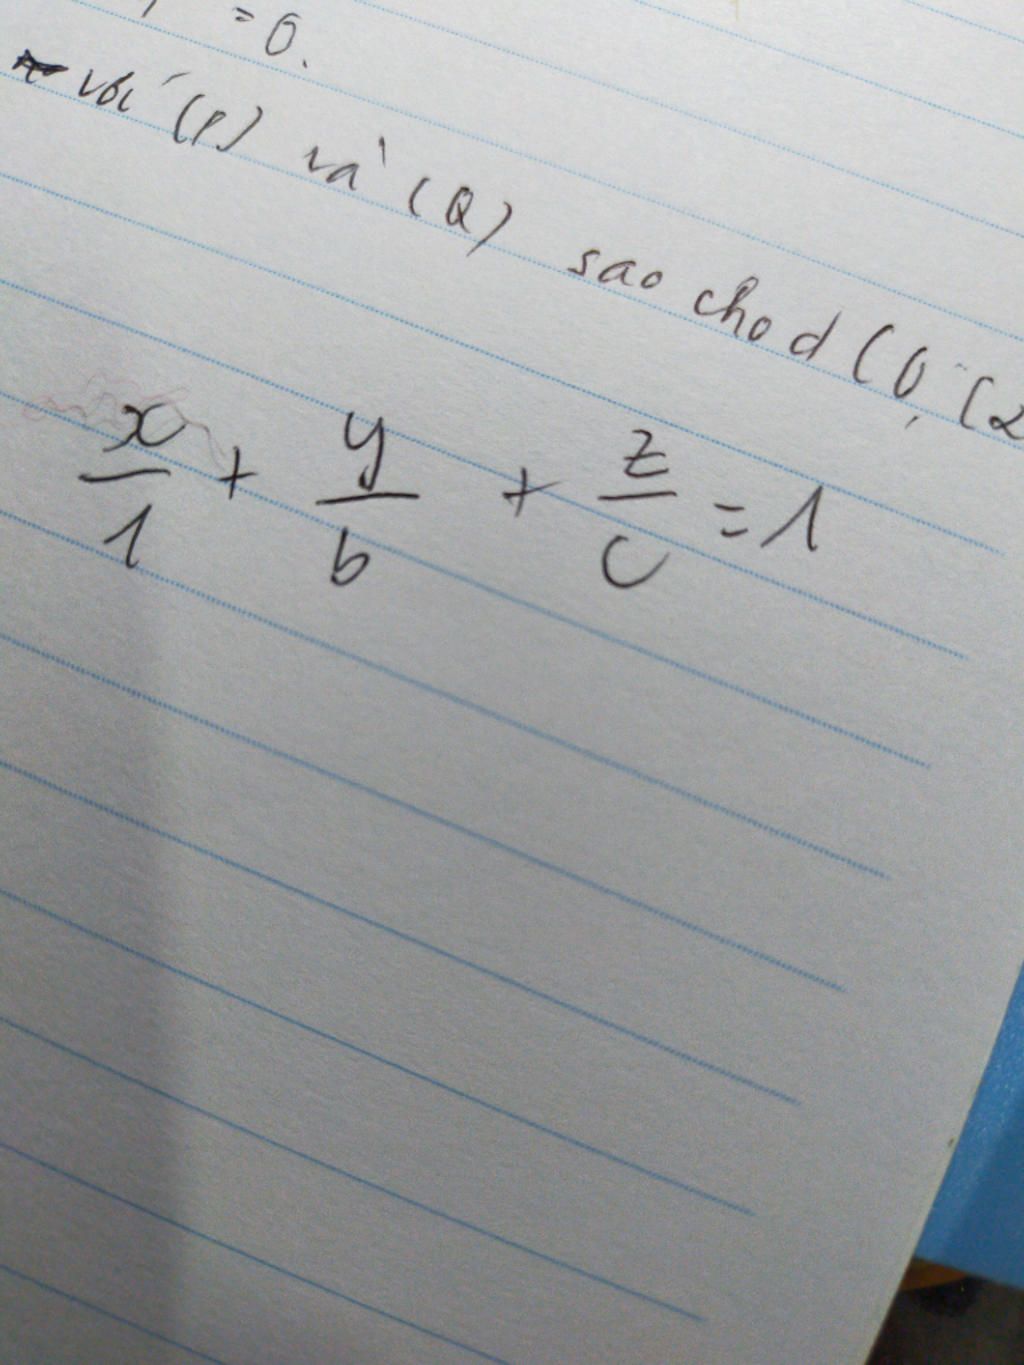 = 0.
với (P) và (Q) sao cho d (O, (2
x/1 + y/b + z/c = 1